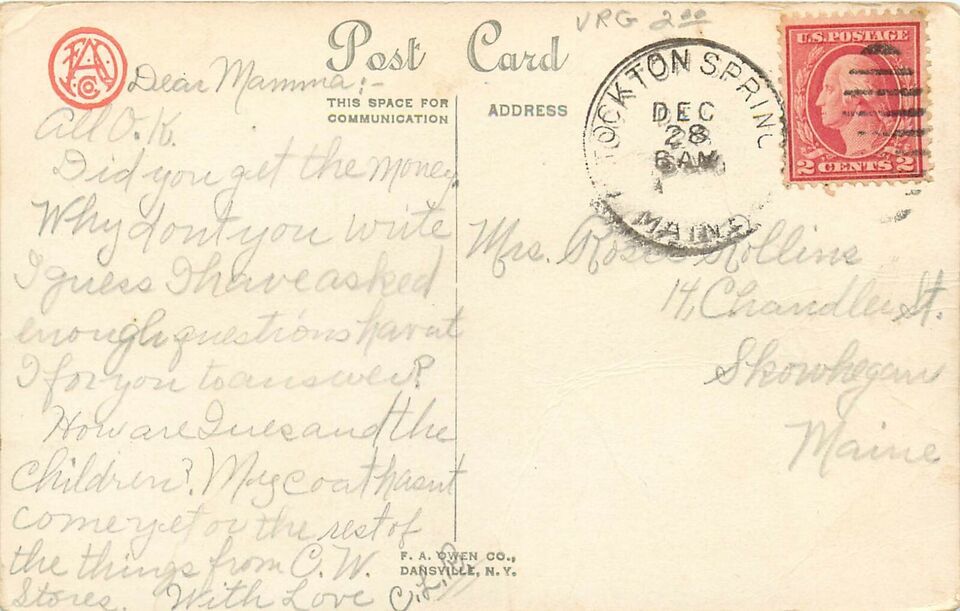 VRG 2.00
Post Card
U.S. POSTAGE
2 CENTS 2
FAO Co.
THIS SPACE FOR
COMMUNICATION
ADDRESS
TOCKTON SPRING
DEC
28
6 AM
MAINE
Dear Mamma:-
All O.K.
Did you get the money.
Why dont you write
I guess I have asked
enough questions havent
I for you to answer?
How are Ines and the
children? My coat hasnt
come yet or the rest of
the things from C.W.
Stores. With Love C.L.R.
Mrs. Rose Rollins
14, Chandler St.
Skowhegan
Maine
F. A. OWEN CO.,
DANSVILLE, N.Y.